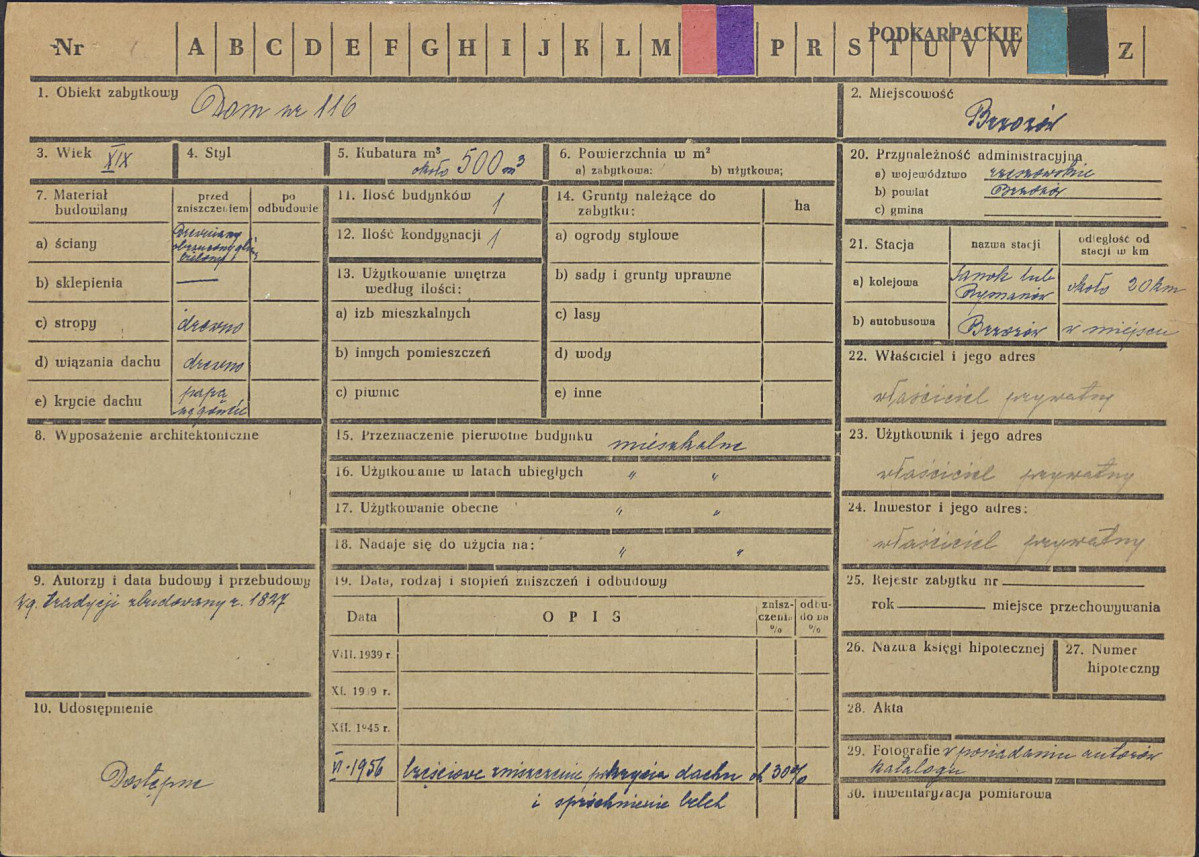 Nr A B C D E F G H I J K L M P R S T U V W Z
PODKARPACKIE
1. Obiekt zabytkowy Dom nr 116
2. Miejscowość
Brzozów
3. Wiek XIX
4. Styl
5. Kubatura m³
około 500 m³
6. Powierzchnia w m²
a) zabytkowa: b) użytkowa:
7. Materiał budowlany
przed zniszczeniem
po odbudowie
a) ściany drewniany
b) sklepienia —
c) stropy drewno
d) wiązania dachu drewno
e) krycie dachu papa
8. Wyposażenie architektoniczne
9. Autorzy i data budowy i przebudowy
wg. tradycji zbudowany r. 1827
10. Udostępnienie
Dostępne
11. Ilość budynków 1
12. Ilość kondygnacji 1
13. Użytkowanie wnętrza
według ilości:
a) izb mieszkalnych
b) innych pomieszczeń
c) piwnic
14. Grunty należące do
zabytku:
ha
a) ogrody stylowe
b) sady i grunty uprawne
c) lasy
d) wody
e) inne
15. Przeznaczenie pierwotne budynku mieszkalne
16. Użytkowanie w latach ubiegłych " "
17. Użytkowanie obecne " "
18. Nadaje się do użycia na: " "
19. Data, rodzaj i stopień zniszczeń i odbudowy
Data O P I S
znisz-
czenia
%
odbu-
dowa
%
VIII. 1939 r
XI. 1939 r.
XII. 1945 r.
VI-1956 częściowe zniszczenie pokrycia dachu ok 30%
i spróchnienie belek
20. Przynależność administracyjna
a) województwo rzeszowskie
b) powiat Brzozów
c) gmina
21. Stacja
nazwa stacji
odległość od
stacji w km
a) kolejowa Sanok lub
Rymanów
około 20 km
b) autobusowa Brzozów w miejscu
22. Właściciel i jego adres
właściciel prywatny
23. Użytkownik i jego adres
właściciel prywatny
24. Inwestor i jego adres:
właściciel prywatny
25. Rejestr zabytku nr
rok miejsce przechowywania
26. Nazwa księgi hipotecznej
27. Numer
hipoteczny
28. Akta
29. Fotografie w posiadaniu autorów
katalogu
30. Inwentaryzacja pomiarowa